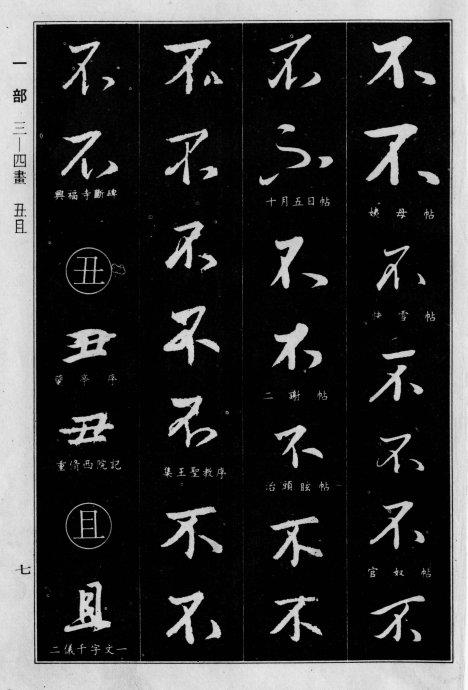 不
不
姨母帖
不
快雪帖
不
不
不
官奴帖
不
不
不
十月五日帖
不
不
二謝帖
不
治頭眩帖
不
不
不
不
不
不
不
集王聖教序
不
不
不
不
興福寺斷碑
丑
丑
蘭亭序
丑
重脩西院記
且
且
二儀千字文一
一部 三—四畫 丑且
七